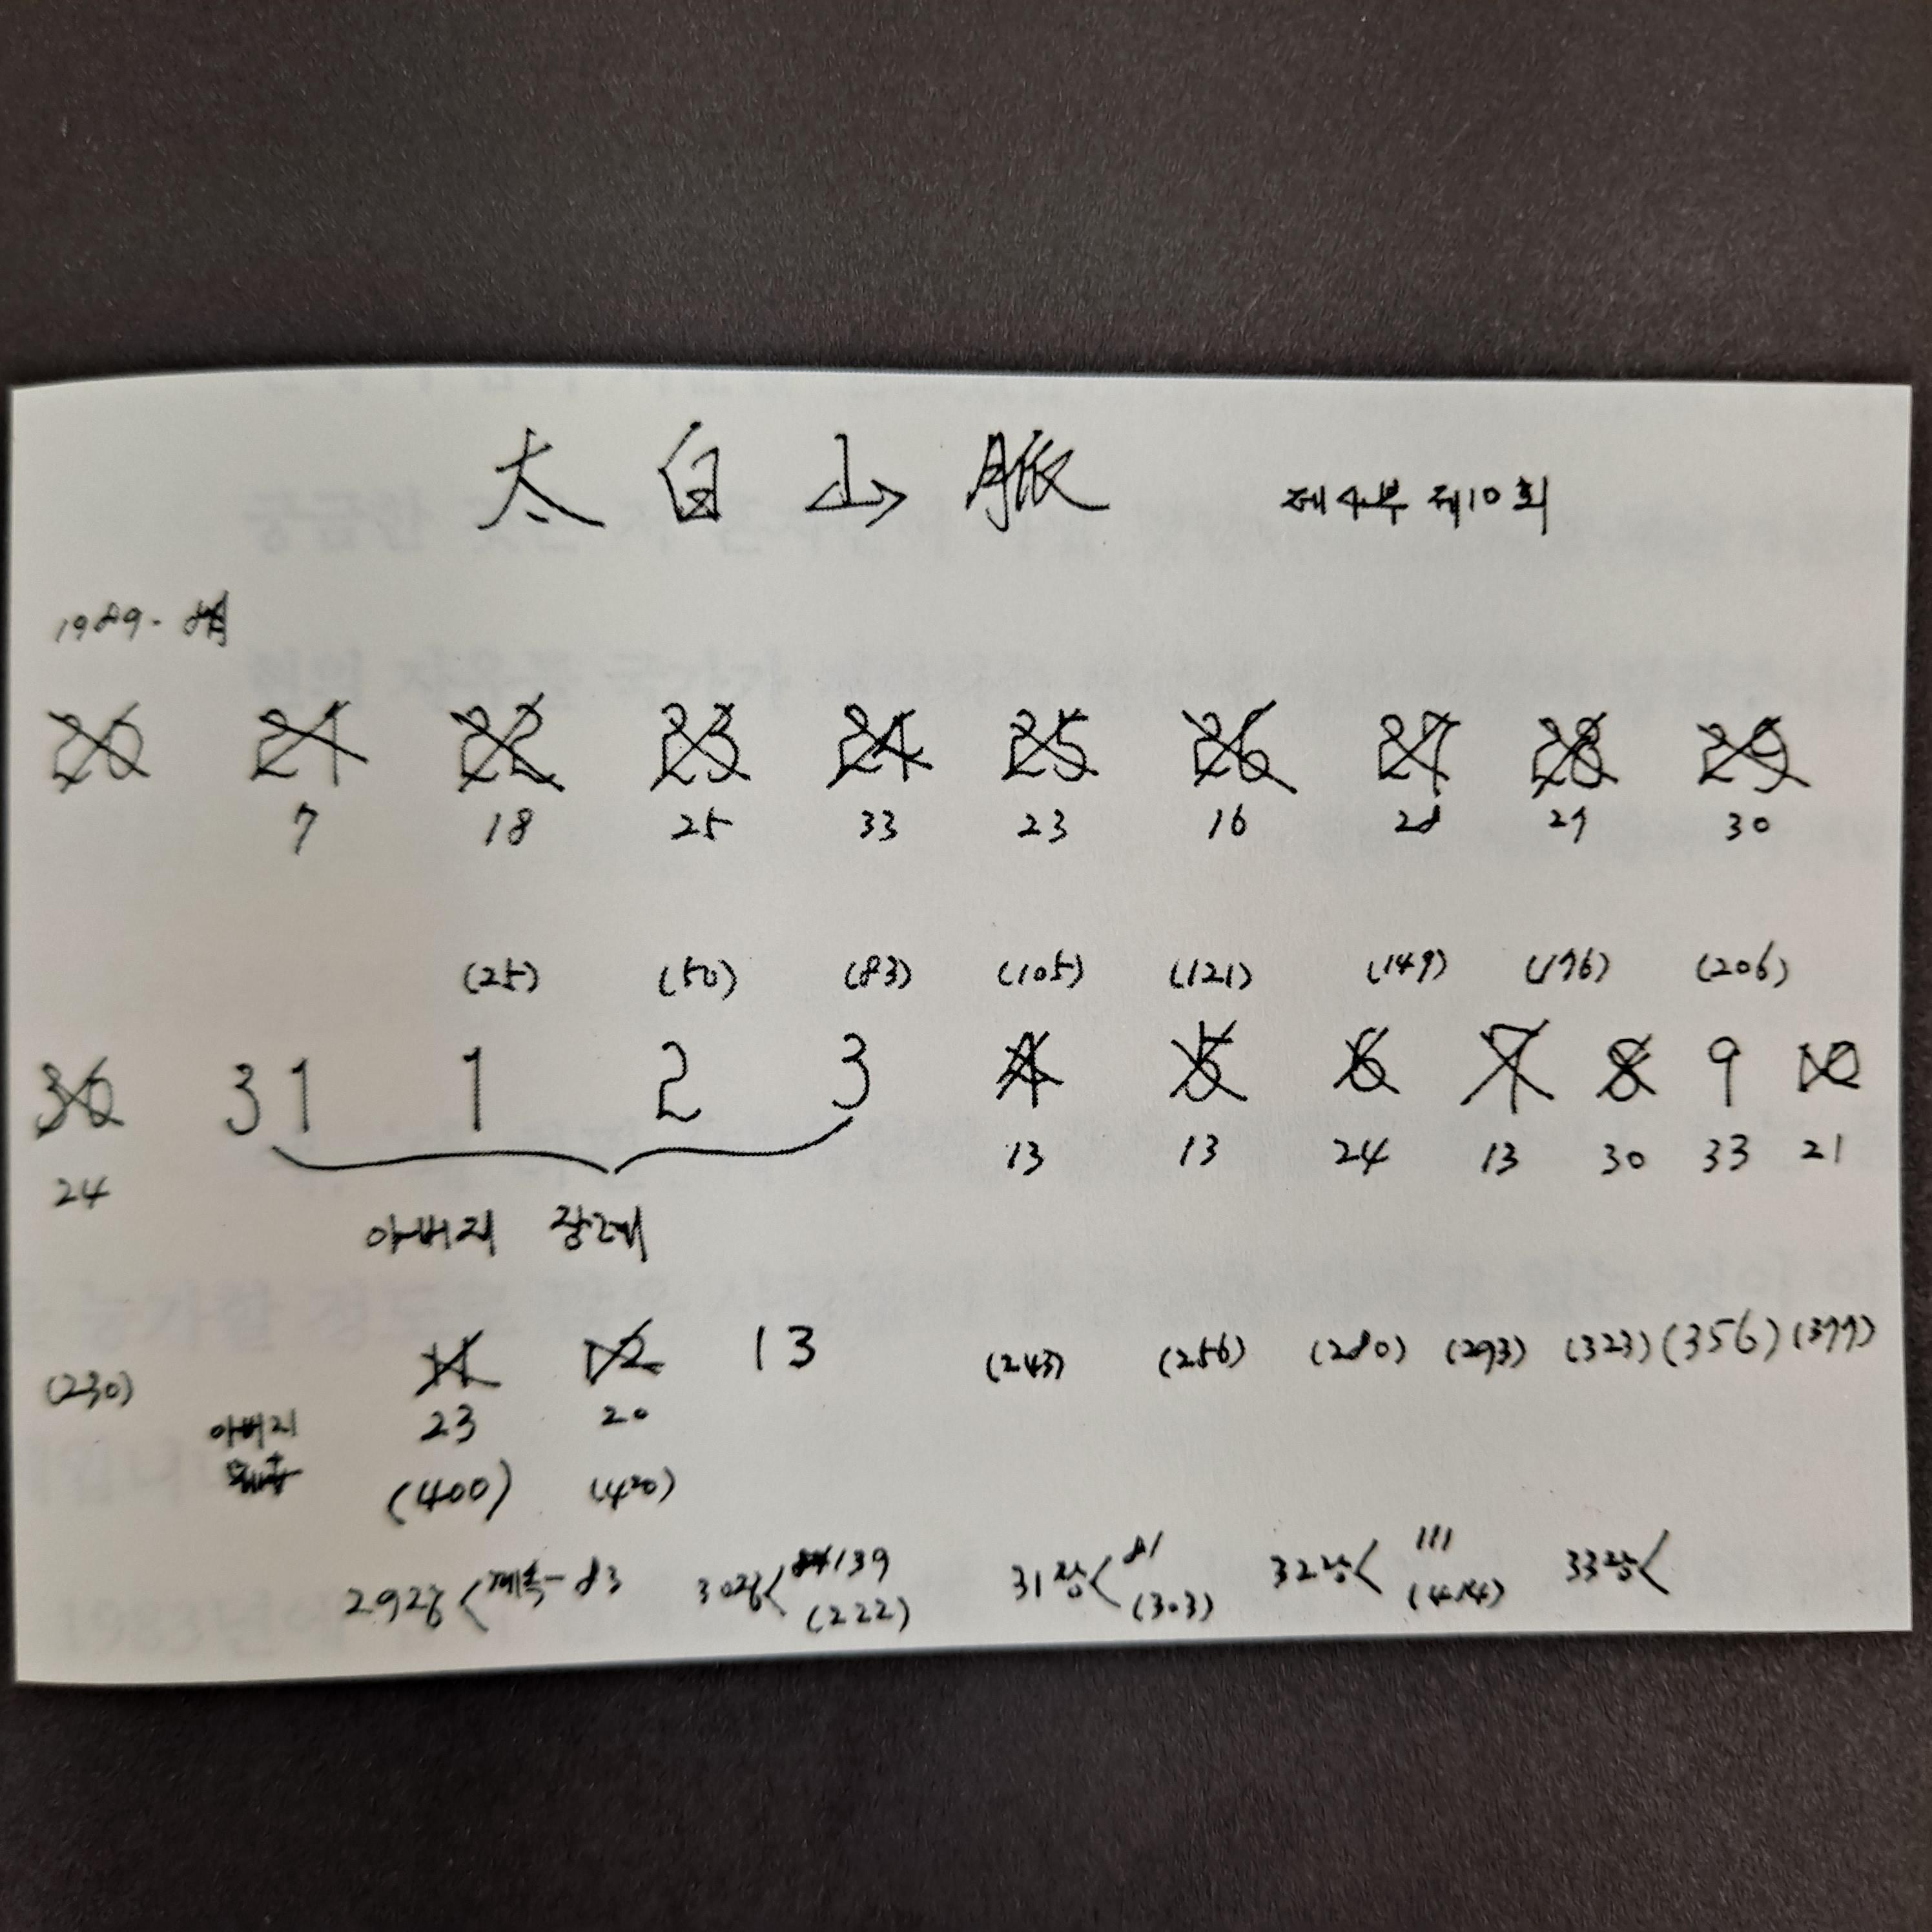 太白山脈 제4부 제10회
1989. 8월
20 21 22 23 24 25 26 27 28 29
7 18 25 33 23 16 28 27 30
(25) (50) (83) (105) (121) (149) (176) (206)
30 31 1 2 3 4 5 6 7 8 9 10
24 13 13 24 13 30 33 21
아버지 장례
11 12 13
(230) (243) (256) (280) (293) (323) (356) (377)
아버지 23 20
(400) (420)
29장 < 계속-83 30장 < 139 31장 < 81 32장 < 111 33장 <
(222) (303) (414)